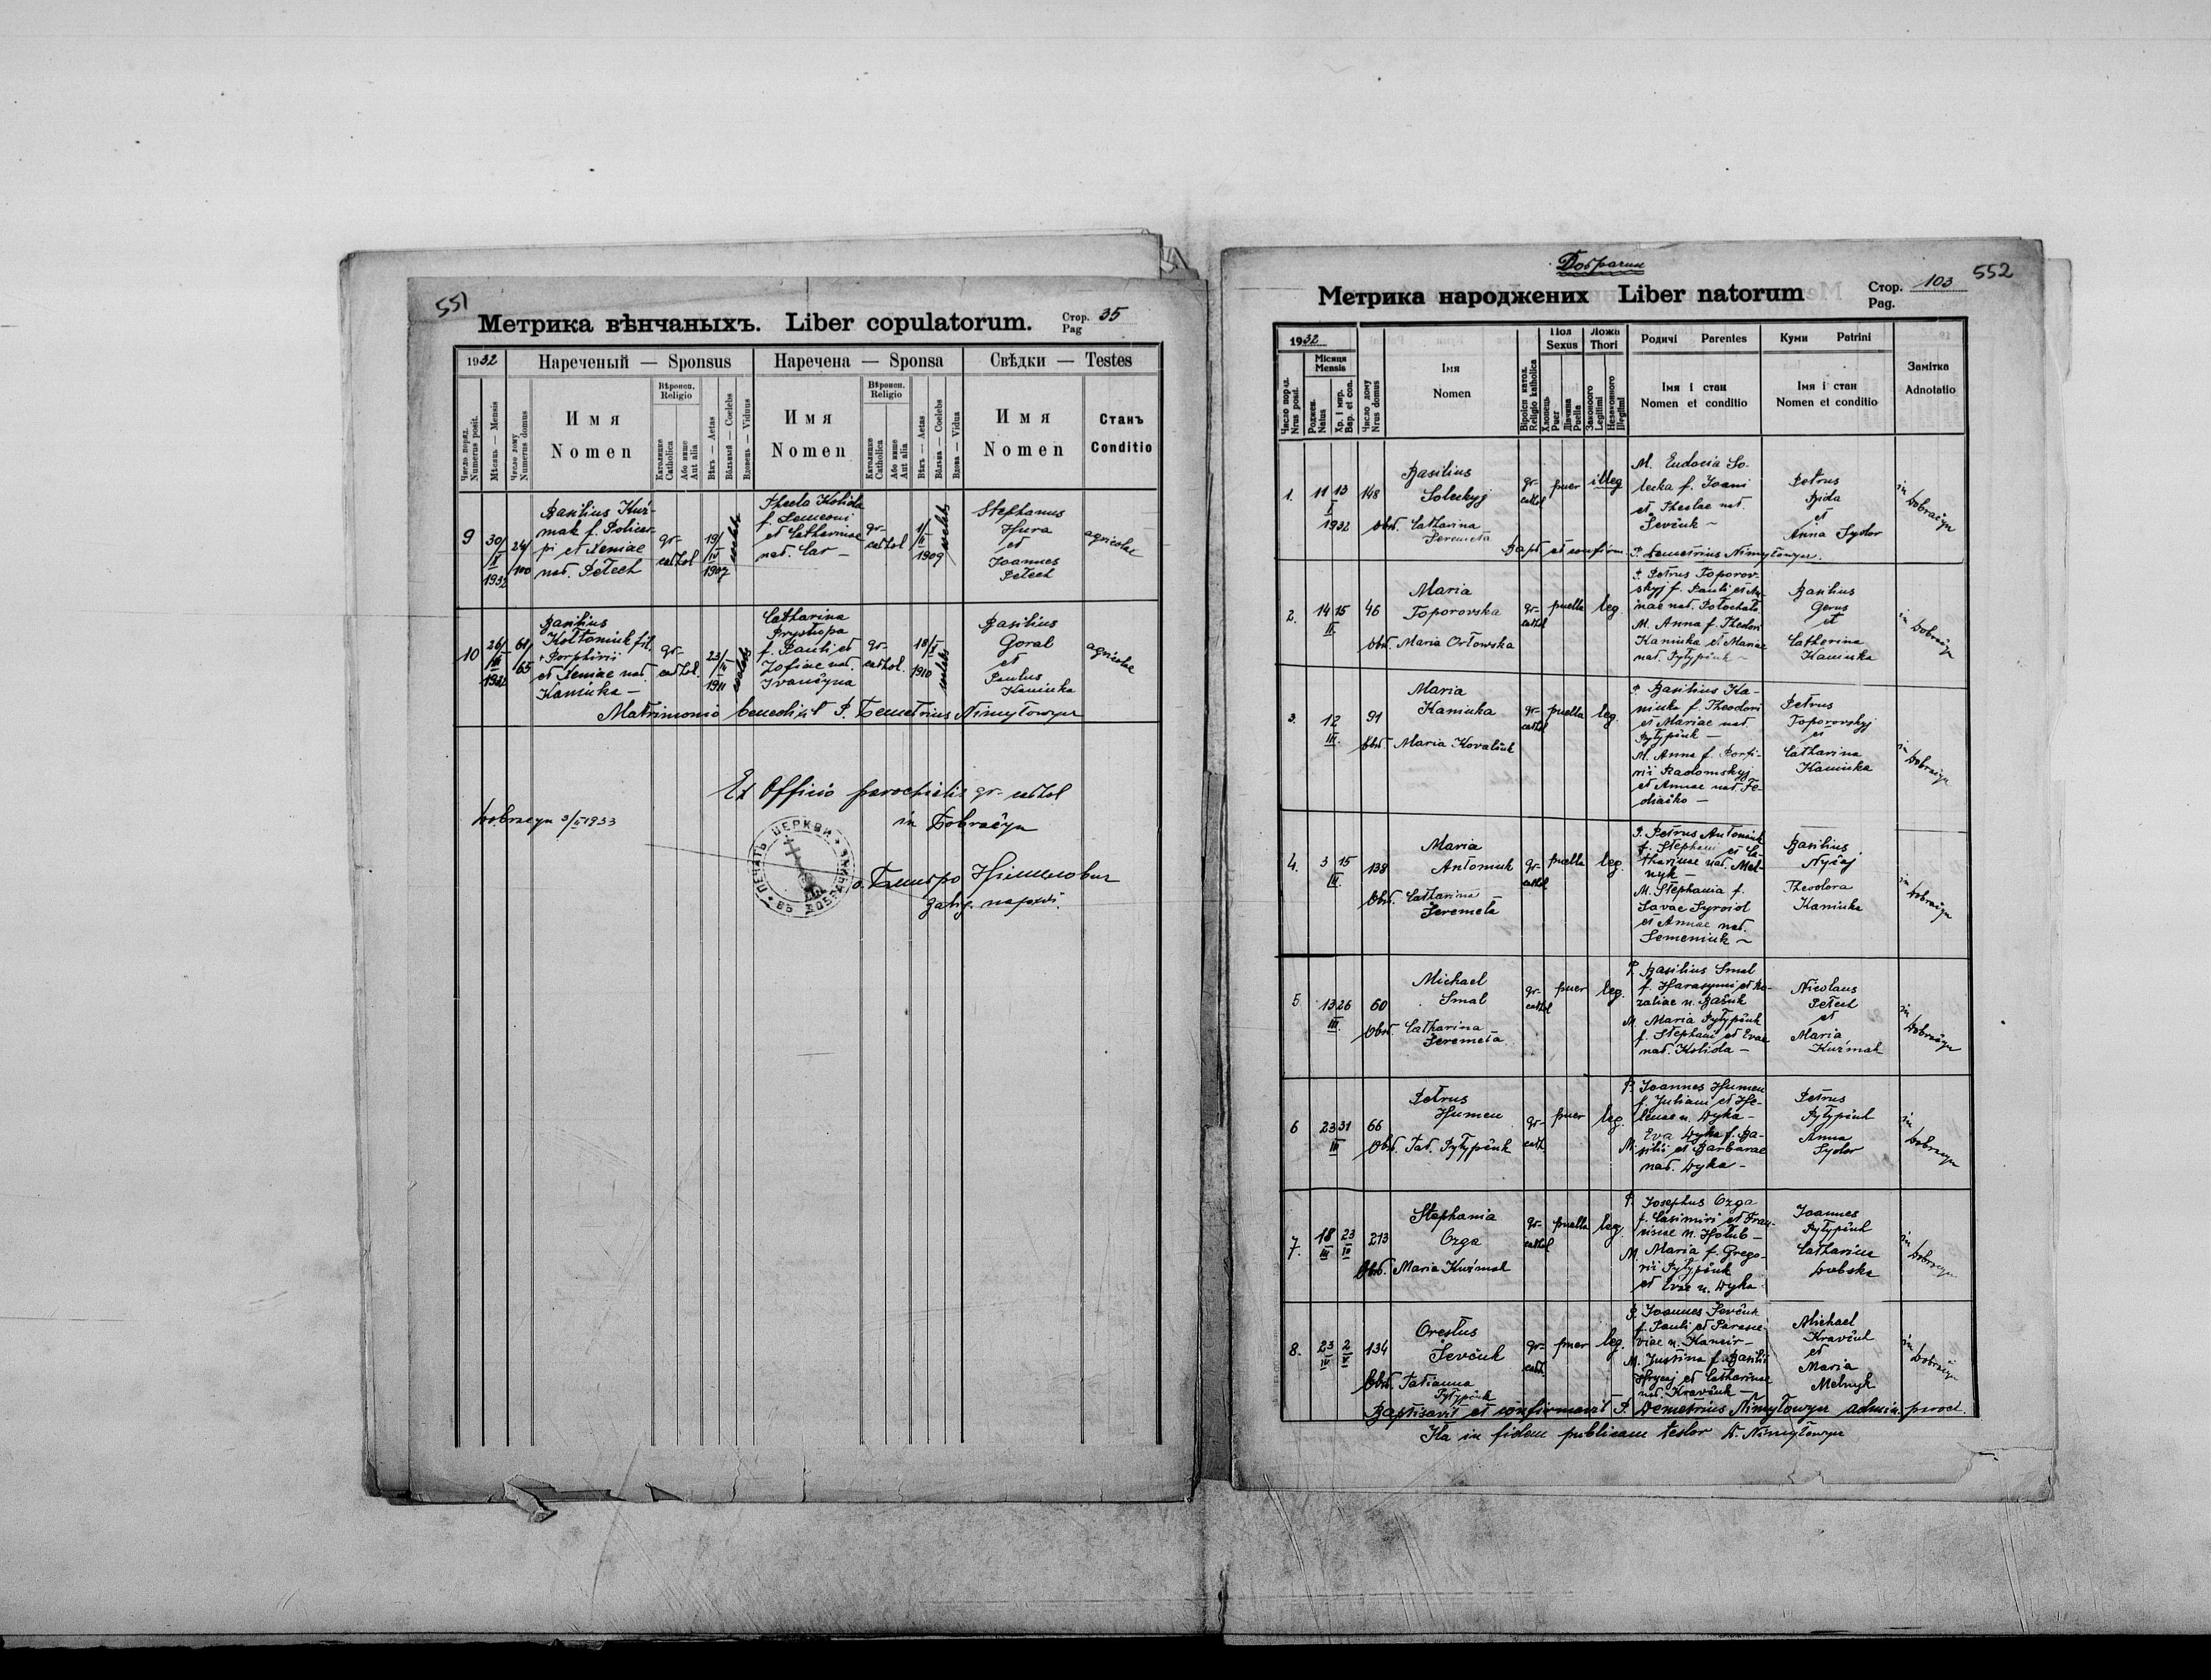 551
Метрика вѣнчаныхъ. Liber copulatorum.
Стор. Pag 35
1932
Нареченый — Sponsus
Наречена — Sponsa
Свѣдки — Testes
Число поряд. Numerus posit.
Мѣсяць — Mensis
Число дому Numerus domus
Имя Nomen
Вѣроисп. Religio
Католицке Catholica
Або инше Aut alia
Вѣкъ — Aetas
Вôльный — Coelebs
Вдовець — Viduus
Имя Nomen
Вѣроисп. Religio
Католицке Catholica
Або инше Aut alia
Вѣкъ — Aetas
Вôльна — Coelebs
Вдова — Vidua
Имя Nomen
Станъ Conditio
9
30/X 1932
24/100
Basilius Kuź-
mak f. Policar-
pi et Xeniae
nat. Petech
gr-
cathol
19/IV 1907
coelebs
Thecla Kolida
f. Semeoni
et Catharinae
nat. Car —
gr-
cathol
1/II 1909
coelebs
Stephanus
Hura
et
Joannes
Petech
agricolae
10
26/XI 1932
61/65
Basilius
Kołtoniuk fil.
+ Porphirii
et Xeniae nat.
Kaniuka —
gr-
cathol.
23/III 1911
coelebs
Catharina
Prystopa
f. Pauli et
Zofiae nat.
Ivančyna
gr-
cathol.
18/X 1910
coelebs
Basilius
Goral
et
Paulus
Kaniuka
agricolae
Matrimonio benedixit P. Demetrius Nimyłowycz
Ex Officio parochiali gr-cathol
Dobraczyn 3/II 1933
in Dobračyn
ПЕЧАТЬ ЦЕРКВИ ВЪ ДОБРАЧИНѢ
о. Дмитро Німилович
552
Добрачин
Метрика народжених Liber natorum
Стор. Pag. 103
1932
Число поряд. Nrus posit.
Місяця Mensis
Роджен. Natus
Хр. і мир. Bap. et con.
Число дому Nrus domus
Імя
Nomen
Віроісп. катол. Religio katholica
Пол Sexus
Хлопець Puer
Дівчина Puella
Ложа Thori
Законного Legitimi
Незаконного Illegtimi
Родичі Parentes
Імя і стан
Nomen et conditio
Куми Patrini
Імя і стан
Nomen et conditio
Замітка
Adnotatio
1.
11 13
I
1932
148
Basilius
Soleckyj
obst. Catharina
Šeremeta
gr-
cathol
puer
illeg
M. Eudocia So-
lecka f. Joani
et Theclae nat.
Ševčuk ~
Petrus
Bida
et
Anna Sydor
in Dobračyn
Bapt et confirm. P. Demetrius Nimyłowycz.
2.
14 15
II.
46
Maria
Toporovska
obst. Maria Orłowska
gr-
cathol
puella
leg.
P. Petrus Toporov-
skyj f. Pauli et An-
nae nat. Potochata
M. Anna f. Theodori
Kaniuka et Mariae
nat. Pyłypčuk ~
Basilius
Gerus
et
Catherina
Kaniuka
in Dobračyn
3.
12
III.
91
Maria
Kaniuka
obst. Maria Kovalčuk
gr-
cathol
puella
leg.
P. Basilius Ka-
niuka f. Theodori
et Mariae nat.
Pyłypčuk —
M. Anna f. Porfi-
rii Radomskyj
et Annae nat. Fe-
diačko —
Petrus
Toporovskyj
et
Catharina
Kaniuka
in Dobračyn
4.
3 15
III.
138
Maria
Antoniuk
obst. Catharina
Šeremeta
gr-
cathol
puella
leg.
P. Petrus Antoniuk
f. Stephani et Ca-
tharinae nat. Mel-
nyk —
M. Stephania f.
Savae Syroid
et Annae nat.
Semeniuk ~
Basilius
Nyčaj
Theodora
Kaniuka
in Dobračyn
5
13 26
III.
60
Michael
Smal
obst. Catharina
Šeremeta
gr-
cathol
puer
leg.
P. Basilius Smal
f. Harasymi et Ro-
zaliae n. Bašuk
M. Maria Pyłypčuk
f. Stephani et Evae
nat. Kolida —
Nicolaus
Petech
et
Maria
Kuźmak
in Dobračyn
6
23 31
III
66
Petrus
Humen
obst. Tat. Pyłypčuk
gr-
cath.
puer
leg.
P. Joannes Humen
f. Juliani et He-
lenae n. Dyka —
Eva Dyka f. Ba-
M. silii et Barbarae
nat. Dyka —
Petrus
Pyłypčuk
Anna
Sydor
in Dobračyn
7.
18 23
III IV
213
Stephania
Ozga
obst. Maria Kuźmak
gr-
cathol
puella
leg.
P. Josephus Ozga
f. Casimiri et Fran-
cisiae n. Hołub —
M. Maria f. Grego-
rii Pyłypčuk
et Evae n. Dyka
Joannes
Pyłypčuk
Catharina
Dubska
in Dobračyn
8.
23 2
IV X
134
Orestus
Ševčuk
obst. Tatianna
Pyłypčuk
gr-
cath.
puer
leg.
P. Joannes Ševčuk
f. Pauli et Parasce-
viae n. Kancir —
M. Justina f. Basilii
Hrycaj et Catharinae
nat. Kravčuk —
Michael
Kravčuk
et
Maria
Melnyk
in Dobračyn
Baptisavit et confirmavit P. Demetrius Nimyłowycz admin. paroch.
Ita in fidem publicam testor D. Nimyłowycz